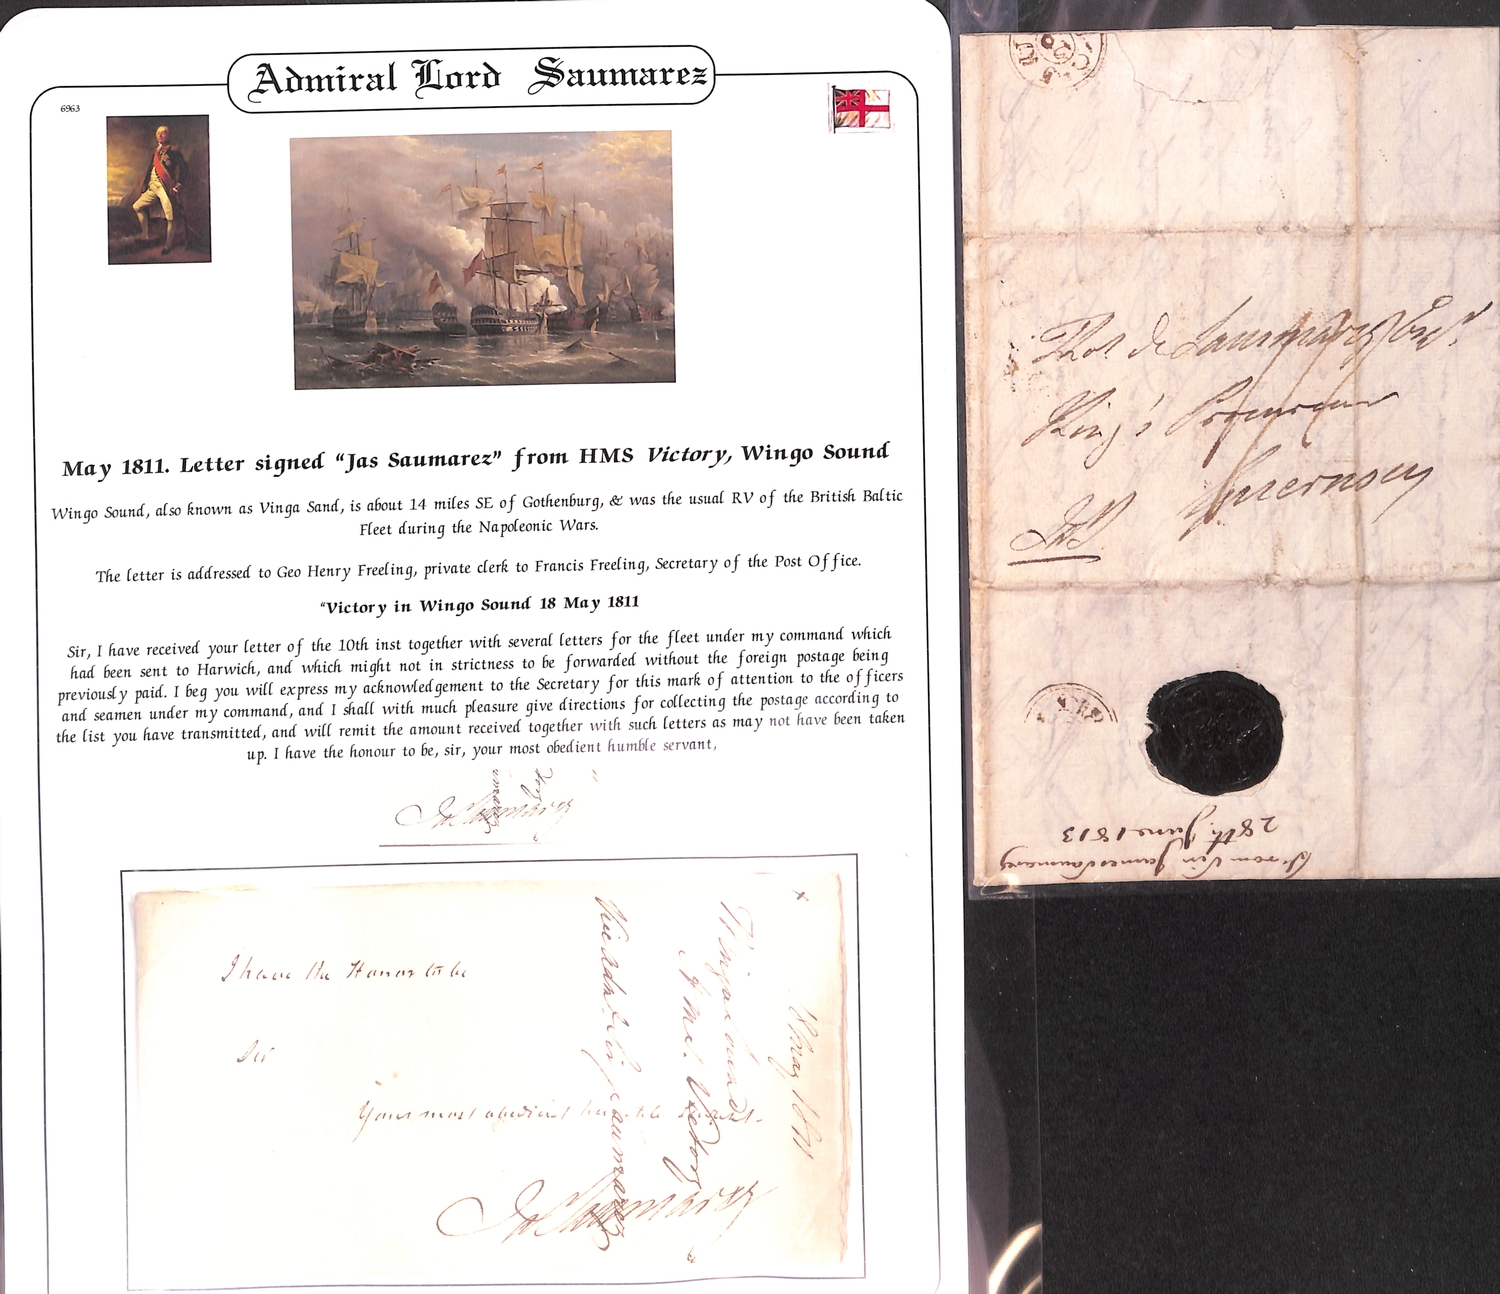 Admiral Lord Saumarez
6963
May 1811. Letter signed “Jas Saumarez” from HMS Victory, Wingo Sound
Wingo Sound, also known as Vinga Sand, is about 14 miles SE of Gothenburg, & was the usual RV of the British Baltic
Fleet during the Napoleonic Wars.
The letter is addressed to Geo Henry Freeling, private clerk to Francis Freeling, Secretary of the Post Office.
“Victory in Wingo Sound 18 May 1811
Sir, I have received your letter of the 10th inst together with several letters for the fleet under my command which
had been sent to Harwich, and which might not in strictness to be forwarded without the foreign postage being
previously paid. I beg you will express my acknowledgement to the Secretary for this mark of attention to the officers
and seamen under my command, and I shall with much pleasure give directions for collecting the postage according to
the list you have transmitted, and will remit the amount received together with such letters as may not have been taken
up. I have the honour to be, sir, your most obedient humble servant,
Jas Saumarez
"
I have the Honor to be
Sir
Your most obedient humble servant
Jas Saumarez
x
May 1811
Wingo Sound
Victory
Saumarez
Thos de Saumarez Esqr
King's Procureur
Guernsey
From Sir James Saumarez
28th June 1813